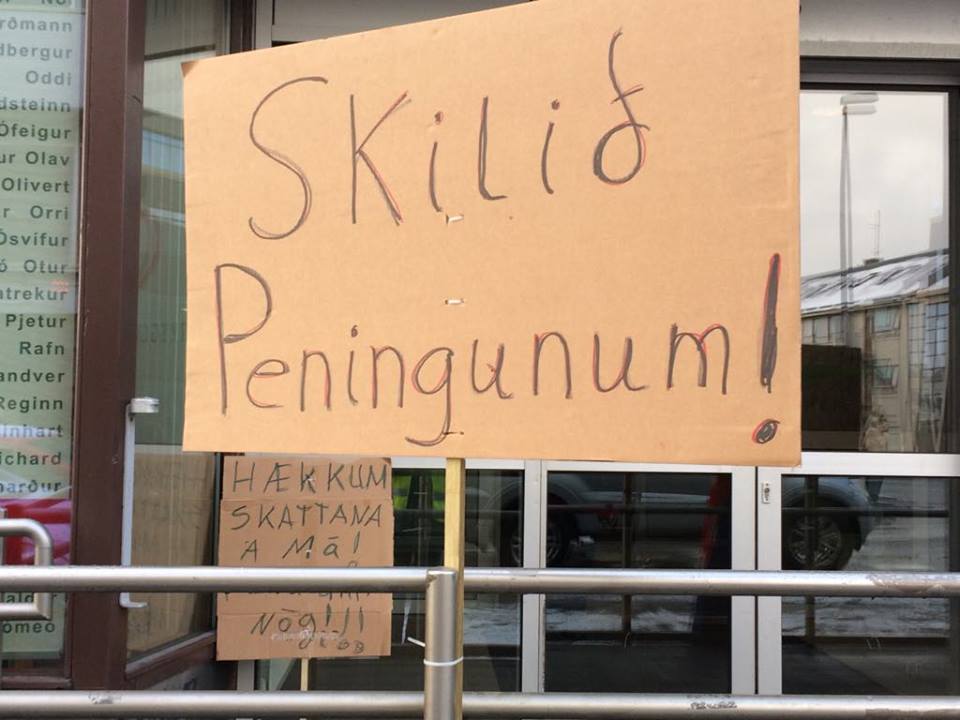 rðmann
dbergur
Oddi
dsteinn
Ófeigur
ur Olav
Olivert
r Orri
Ósvífur
ó Otur
atrekur
Pjetur
Rafn
andver
Reginn
inhart
ichard
harður
Skilið
Peningunum!
HÆKKUM
SKATTANA
Á Má!
NÓg!!!
omeo